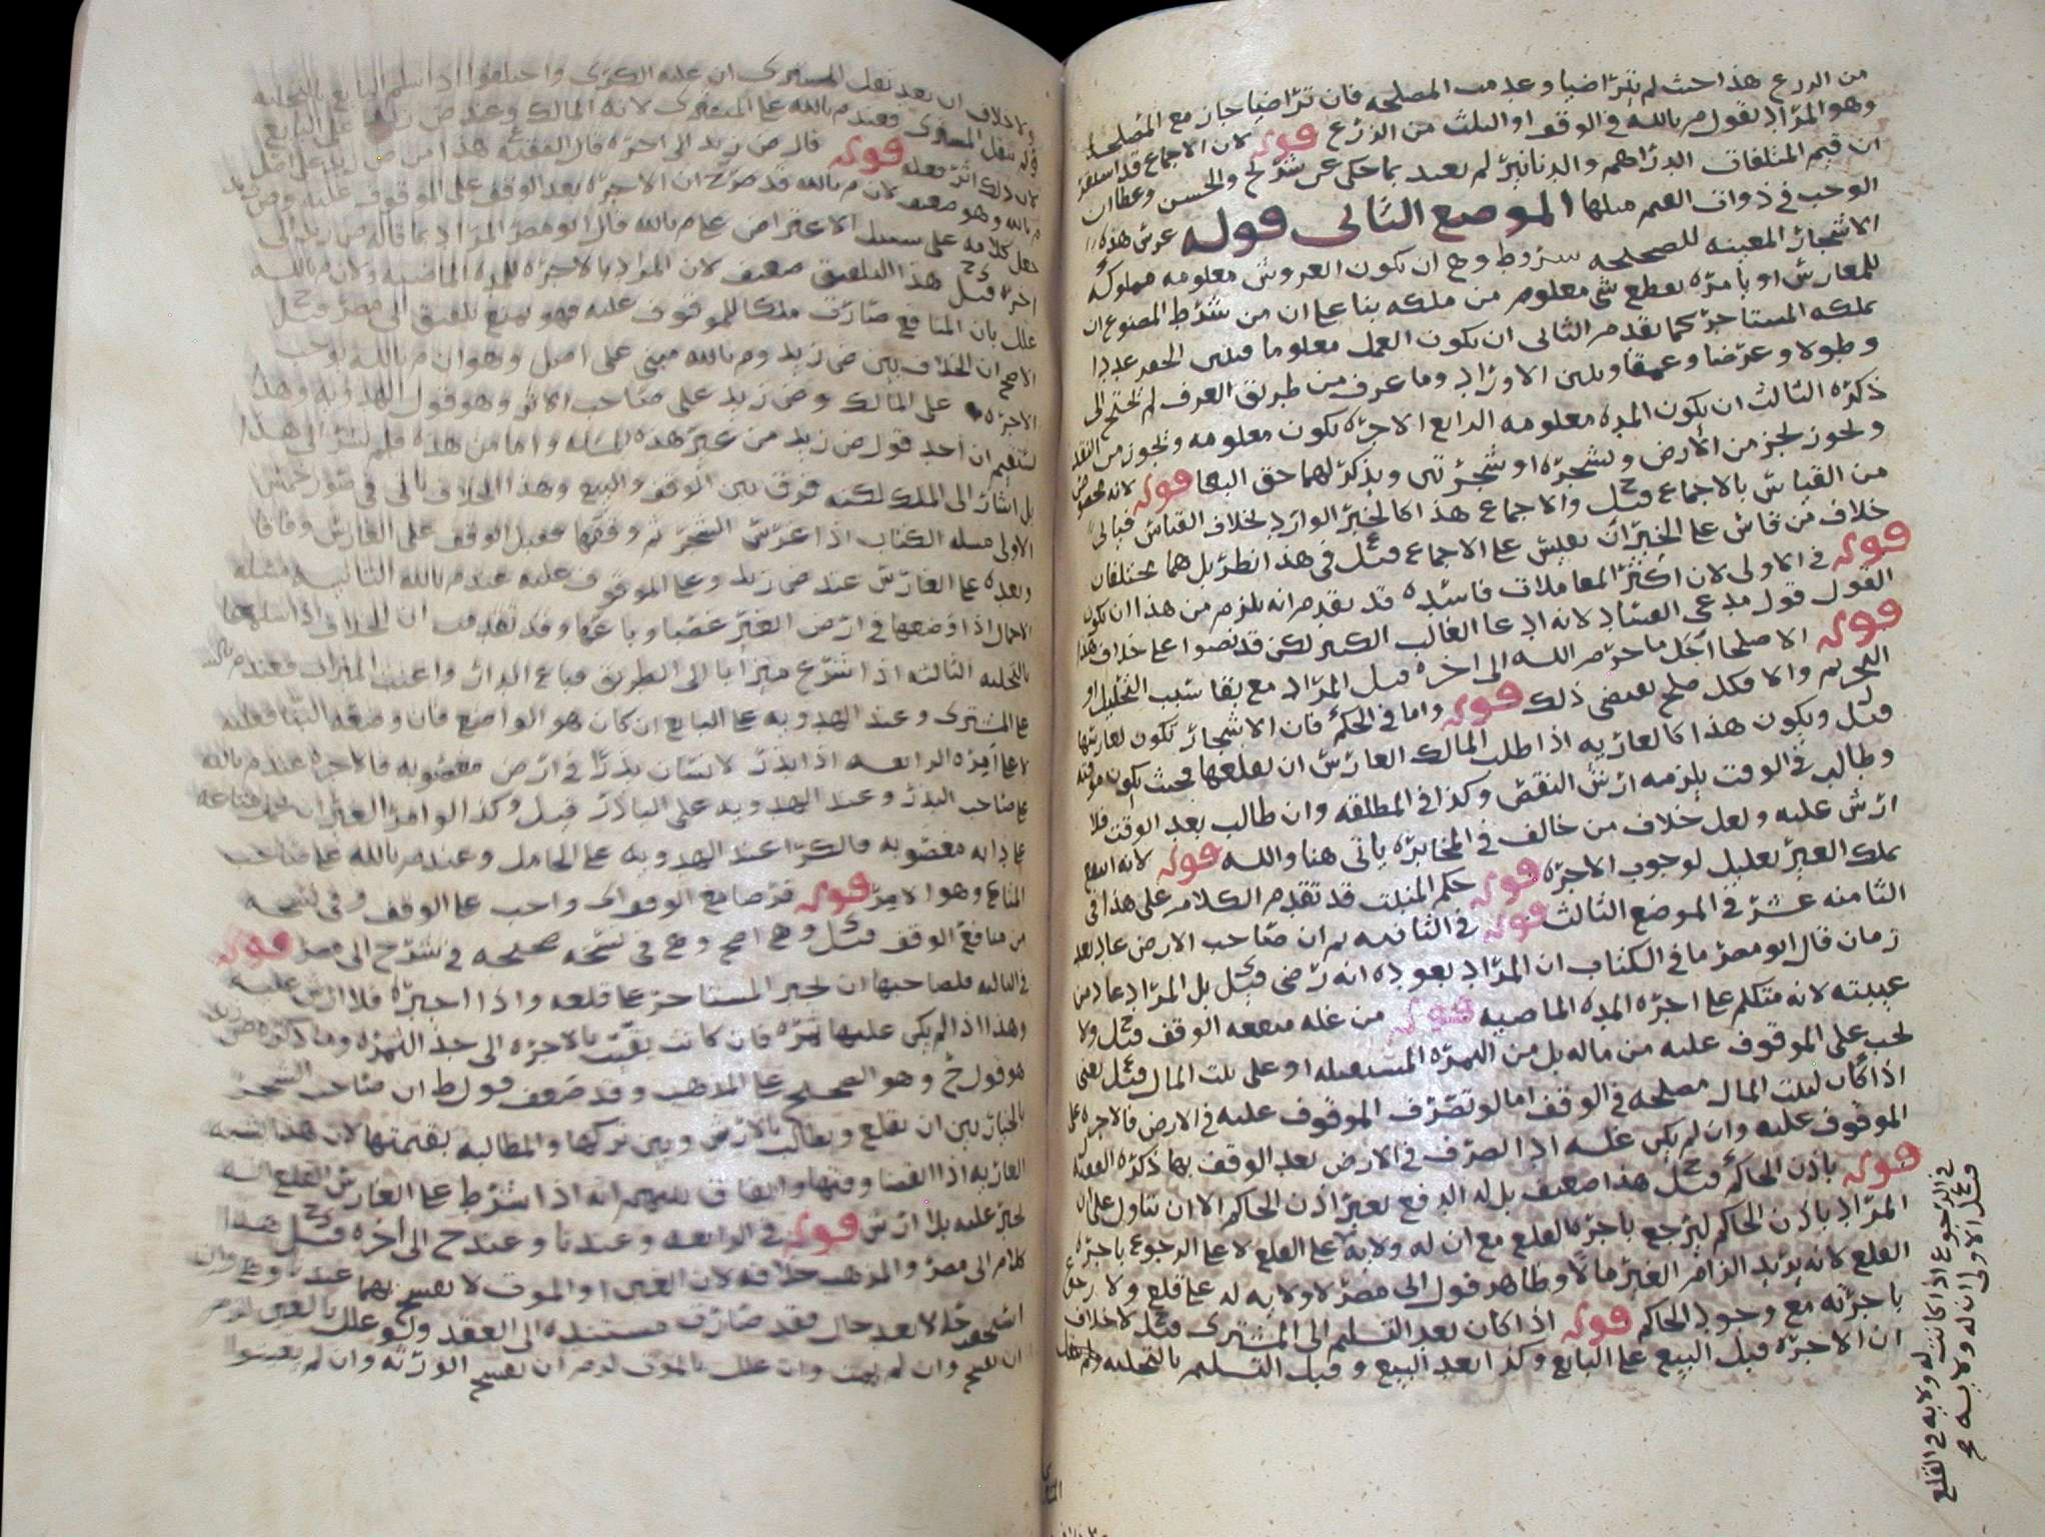 من الزرع هذا حيث لم يتراضيا وعدمت المصلحه فان تراضيا جاز مع المصلحة
وهو المراد بقول م بالله في الوقف او الثلث من الزرع قوله لان الاجماع قد استقر
ان قيم المتلفات الدراهم والدنانير لم يعتد بما حكى عن شريح والحسن وعطا ان
الوجب في ذوات القيم مثلها الموضع الثاني قوله غرس هذه
الاشجار المعينه للصحيحه شروط وهي ان يكون الغروس معلومه مملوكه
للغارس او يامره بقطع شي معلوم من ملكه بنا على ان من شرط المصنوع ان
يملكه المستاجر كما تقدم الثاني ان يكون العمل معلوما فيبين الحفر عددا
وطولا وعرضا وعمقا ويبين الاوراد وما عرف من طريق العرف لم يحتج الى
ذكره الثالث ان يكون المده معلومه الرابع الاجره يكون معلومه ويجوز من النقد
ويجوز بجز من الارض وبشجره او شجرتين ويذكر لهما حق البقا قوله لانه مخصوص
من القياس بالاجماع قيل والاجماع هذا كالخبر الوارد بخلاف القياس فياتي
خلاف من قاس على الخبر ان يقيس على الاجماع قيل في هذا نظر بل هما مختلفان
قوله في الاولى لان اكثر المعاملات فاسده قد تقدم انه يلزم من هذا ان يكون
القول قول مدعي الفساد لانه ادعا الغالب الكثير لكن قد نصوا على خلاف هذا
قوله الا صلحا احل ما حرم الله الى اخره قيل المراد مع بقا سبب التحليل او
التحريم والا فكل صلح يقتضي ذلك قوله واما في الحكم فان الاشجار تكون لغارسها
قيل ويكون هذا كالعاريه اذا طلب المالك الغارس ان يقلعها بحيث يكون موقته
وطالب في الوقت يلزمه ارش النقص وكذا في المطلقه وان طالب بعد الوقت فلا
ارش عليه ولعل خلاف من خالف في المخابره ياتي هنا والله قوله لانه انتفع
بملك الغير تعليل لوجوب الاجره قوله حكم المنبت قد تقدم الكلام على هذا في
الثامنه عشر في الموضع الثالث قوله في الثانيه ثم ان صاحب الارض عاد بعد
زمان قال ابو مضر ما في الكتاب ان المراد بعوده انه رضى قيل بل المراد عاد من
غيبته لانه متكلم على اجره المده الماضيه قوله من غله منفعه الوقف قيل ولا
يجب على الموقوف عليه من ماله بل من الثمره المستقبله او على بيت المال قيل يعني
اذا كان لبيت المال مصلحه في الوقف اما لو تصرف الموقوف عليه في الارض فالاجره على
الموقوف عليه وان لم يكن غله اذا تصرف في الارض بعد الوقف بها ذكره الفقيه
قوله باذن الحاكم قيل هذا ضعيف بل له الدفع بغير اذن الحاكم الا ان يتاول على ان
المراد باذن الحاكم ليرجع باجره القلع مع ان له ولايه على القلع لا على الرجوع باجره
القلع لانه يريد الزام الغير مالا وظاهر قول ابي مضر لا ولايه له على قلع ولا رجوع
باجرته مع وجود الحاكم قوله اذا كان بعد التسليم الى المشتري قيل لا خلاف
ان الاجره قبل البيع على البايع وكذا بعد البيع وقبل التسليم بالتخليه
قيل الاولى ان له ولايه
في الرجوع اذا كانت له ولايه في القلع
ولا خلاف ان بعد نقل المشتري ان عليه الكرى واختلفوا اذا سلم البايع بالتخليه
ولم ينقل المشتري فعند م بالله على المشتري لانه المالك وعند ض زيد على البايع
لان ذلك اثر فعله قوله قال ض زيد الى اخره قال الفقيه هذا من ض زيد على اصل
م بالله وهو ضعيف لان م بالله قد صرح ان الاجره بعد الوقف على الموقوف عليه وض زيد
جعل كلامه على سبيل الاعتراض على م بالله قال ابو مضر المراد بما قاله ض زيد الى
اخره قيل هذا التلفيق ضعيف لان المراد بالاجره للمده الماضيه ولان م بالله
علل بان المنافع صارت ملكا للموقوف عليه فهو يمنع تلفيق ابي مضر قيل
الاصح ان الخلاف بين ض زيد وم بالله مبني على اصل وهو ان م بالله يوجب
الاجره على المالك وض زيد على صاحب الاثر وهو قول الهدويه وهذا
يستقيم ان اخذ قول ض زيد من غير هذه المسله واما من هذه فلم يشر الى هذا
بل اشار الى الملك لكنه فرق بين الوقف والبيع وهذا الخلاف ياتي في صور خمس
الاولى مسله الكتاب اذا غرس الشجر ثم وقفها فقبل الوقف على الغارس وفاقا
وبعده على الغارس عند ض زيد وعلى الموقوف عليه عند م بالله الثانيه مسله
الاحمال اذا وضعها في ارض الغير غصبا وباعها وقد تقدمت ان الخلاف اذا سلمها
بالتخليه الثالثه اذا شرع ميزابا الى الطريق فباع الدار واعنت الميزاب فعند م بالله
على المشتري وعند الهدويه على البايع ان كان هو الواضع فان وضعه البنا فعليه
لا على امره الرابعه اذا بذر لانسان بذرا في ارض مغصوبه فالاجره عند م بالله
على صاحب البذر وعند الهدويه على الباذر قيل وكذا لو امر الغير ان يحمل متاعه
على دابه مغصوبه فالكرا عند الهدويه على الحامل وعند م بالله على صاحب
المتاع وهو الامر قوله قرضا مع الوفوات واجب على الوقف وفي نسخه
من منافع الوقف قيل وهي اصح وهي في نسخه صحيحه في شرح ابي مضر قوله
في الثالثه فلصاحبها ان يجبر المستاجر على قلعه واذا اجبره فلا ارش عليه
وهذا اذا لم يكن عليها ثمره فان كانت بقيت بالاجره الى جذ الثمره وما ذكره ض زيد
هو قول ح وهو الصحيح على المذهب وقد ضعف قول ط ان صاحب الشجر
بالخيار بين ان يقلع ويطالب بالارش وبين تركها والمطالبه بقيمتها لان هذا يشبه
العاريه اذا انقضا وقتها واتفاق بينهم انه اذا اشترط على الغارس القلع انه
يجبر عليه بلا ارش قوله في الرابعه وعندنا وعند ح الى اخره قيل هذا
كلام ابي مضر والمذهب خلافه لان الغبن او الموت لا يفسخ بهما عندنا وان
استحقه حالا بعد حال فقد صارت مستنده الى العقد ولو علل بالغبن لزم
ان يفسخ وان لم يمت وان علل بالموت لزم ان يفسخ الورثه وان لم يغبنوا